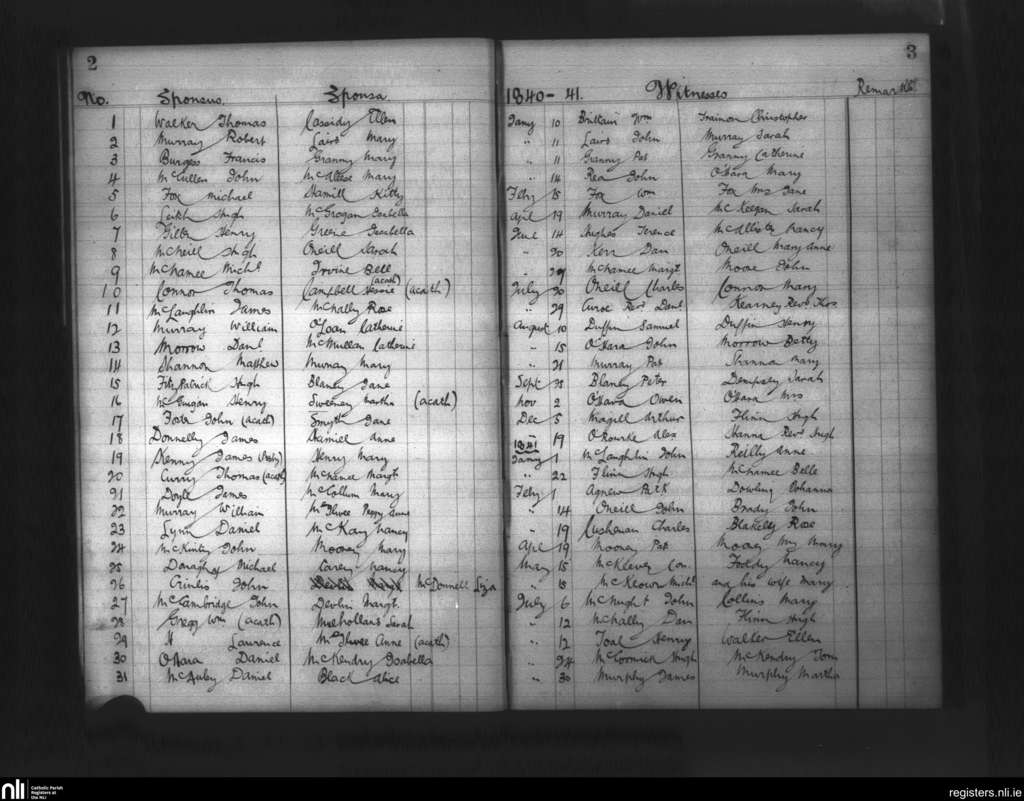 2
3
No. Sponsus. Sponsa 1840-41. Witnesses Remarks
1 Walker Thomas Cassidy Ellen Jany 10 Brittain Wm Trainor Christopher
2 Murray Robert Laird Mary " 11 Laird John Murray Sarah
3 Burgess Francis Granny Mary " 11 Granny Pat Granny Catherine
4 McCullen John McAleese Mary " 14 Rea John O'Hara Mary
5 Fox Michael Hamill Kitty Feby 15 Fox Wm Fox Mrs Jane
6 Leith Hugh McGrogan Isabella April 19 Murray Daniel McKeegan Sarah
7 Henry Greene Isabella June 14 Hughes Terence McAllister Nancy
8 McNeill Hugh Oneill Sarah " 20 Kerr Dan Oneill Mary Anne
9 McNamee Michl Irvine Bell " 29 McNamee Margt Moore John
10 Connor Thomas Campbell Jessie (acath) (acath) July 20 Oneill Charles Connor Mary
11 McLaughlin James McNally Rose " 29 Curoe Revd Danl Kearney Revd Thos
12 Murray William O'Loan Catherine August 10 Duffin Samuel Duffin Henry
13 Morrow Danl McMullan Catherine " 15 O'Hara John Morrow Betty
14 Shannon Matthew Murray Mary " 21 Murray Pat Hanna Mary
15 FitzPatrick Hugh Blaney Jane Sept Blaney Peter Dempsey Sarah
16 McGuigan Henry Sweeney Martha (acath) Nov 2 O'Hara Owen O'Hara Mrs
17 Foster John (acath) Smyth Jane Dec 5 Magill Arthur Flinn Hugh
18 Donnelly James Hamill Anne " 19 O'Rourke Alex Hanna Revd Hugh
1841
19 Kenny James Henry Mary Jany 1 McLaughlin John Reilly Anne
20 Curry Thomas (acath) McKenee Margt " 22 Flinn Hugh McNamee Belle
21 Doyle James McCollum Mary Feby 1 Agnew Pat Dowling Johanna
22 Murray William McIlwee Peggy " 14 Oneill John Brady John
23 Lynn Daniel McKay Nancy " 19 Cushenan Charles Blakely Rose
24 McKinley John Mooney Mary April 19 Mooney Pat Mooney Mrs Mary
25 Donaghy Michael Carey Nancy May 15 McKlevey Con. Foddy Nancy
26 Crinlis John McDonnell Liza " 18 McKeown Michl and his wife Mary
27 McCambridge John Devlin Margt July 6 McNught John Collins Mary
28 Gregg Wm (acath) Mulholland Sarah " 12 McNally Dan Flinn Hugh
29 Laurence McIlwee Anne (acath) " 12 Toal Henry Walker Ellen
30 O'Hara Daniel McKendry Isabella " 24 McCormick Hugh McKendry Tom
31 McAuley Daniel Black Alice " 30 Murphy James Murphy Martha
nli Catholic Parish
Registers at
the NLI
registers.nli.ie